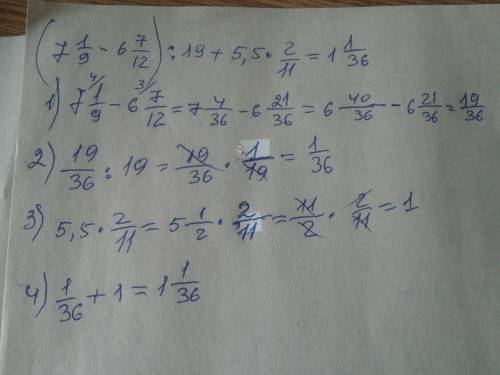 (7 1/9 - 6 7/12) : 19 + 5,5 · 2/11 = 1 1/36
1) 7 1/9 - 6 7/12 = 7 4/36 - 6 21/36 = 6 40/36 - 6 21/36 = 19/36
2) 19/36 : 19 = 19/36 · 1/19 = 1/36
3) 5,5 · 2/11 = 5 1/2 · 2/11 = 11/2 · 2/11 = 1
4) 1/36 + 1 = 1 1/36